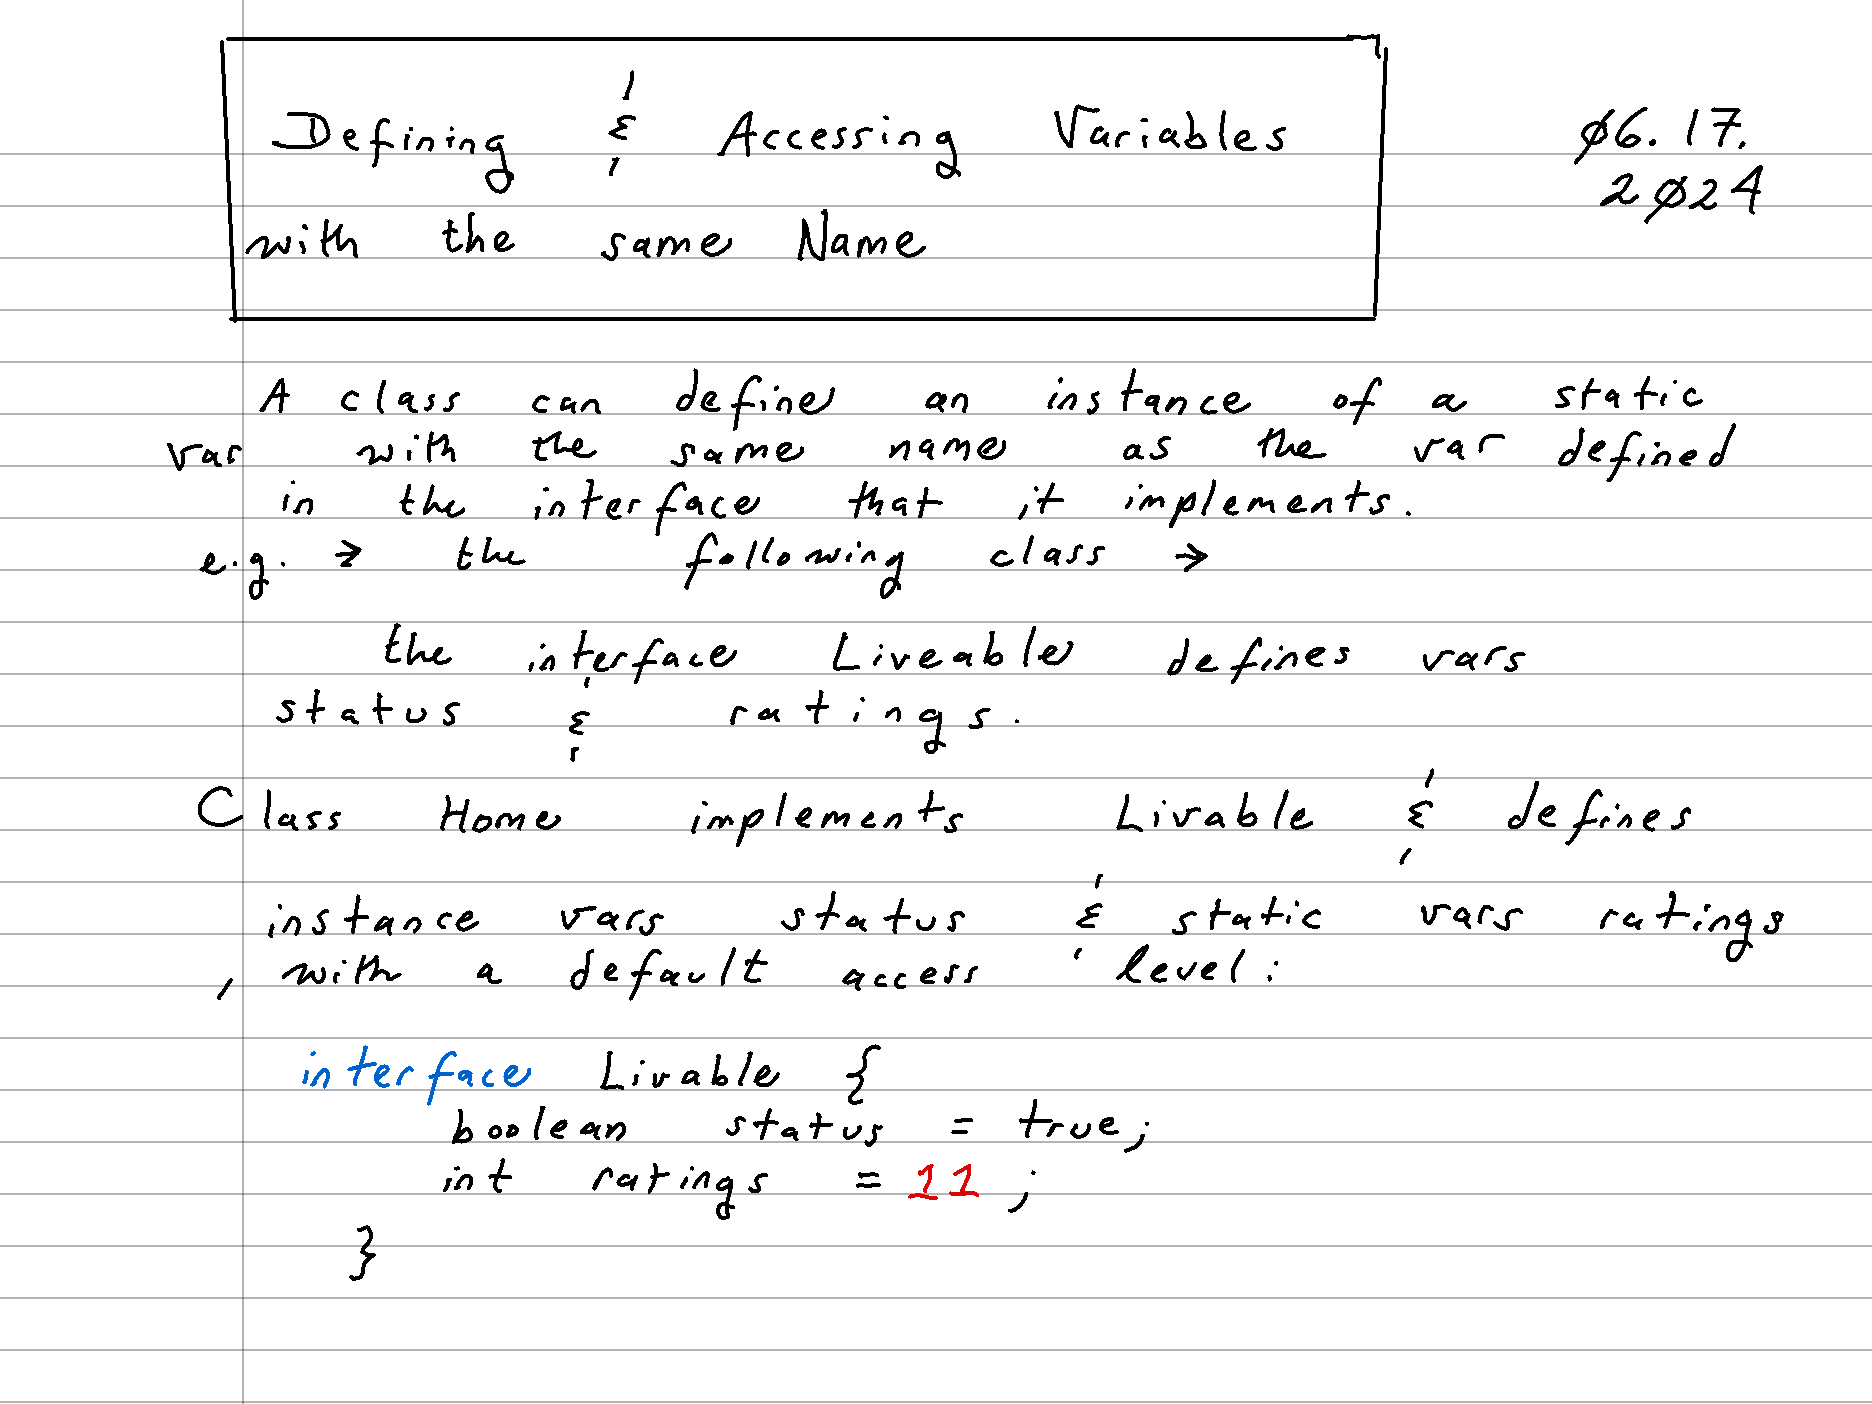 Defining & Accessing Variables
with the same Name
06.17.
2024
A class can define an instance of a static
var with the same name as the var defined
in the interface that it implements.
e.g. → the following class →
the interface Liveable defines vars
status & ratings.
Class Home implements Livable & defines
instance vars status & static vars ratings
, with a default access level:
interface Livable {
boolean status = true;
int ratings = 11 ;
}